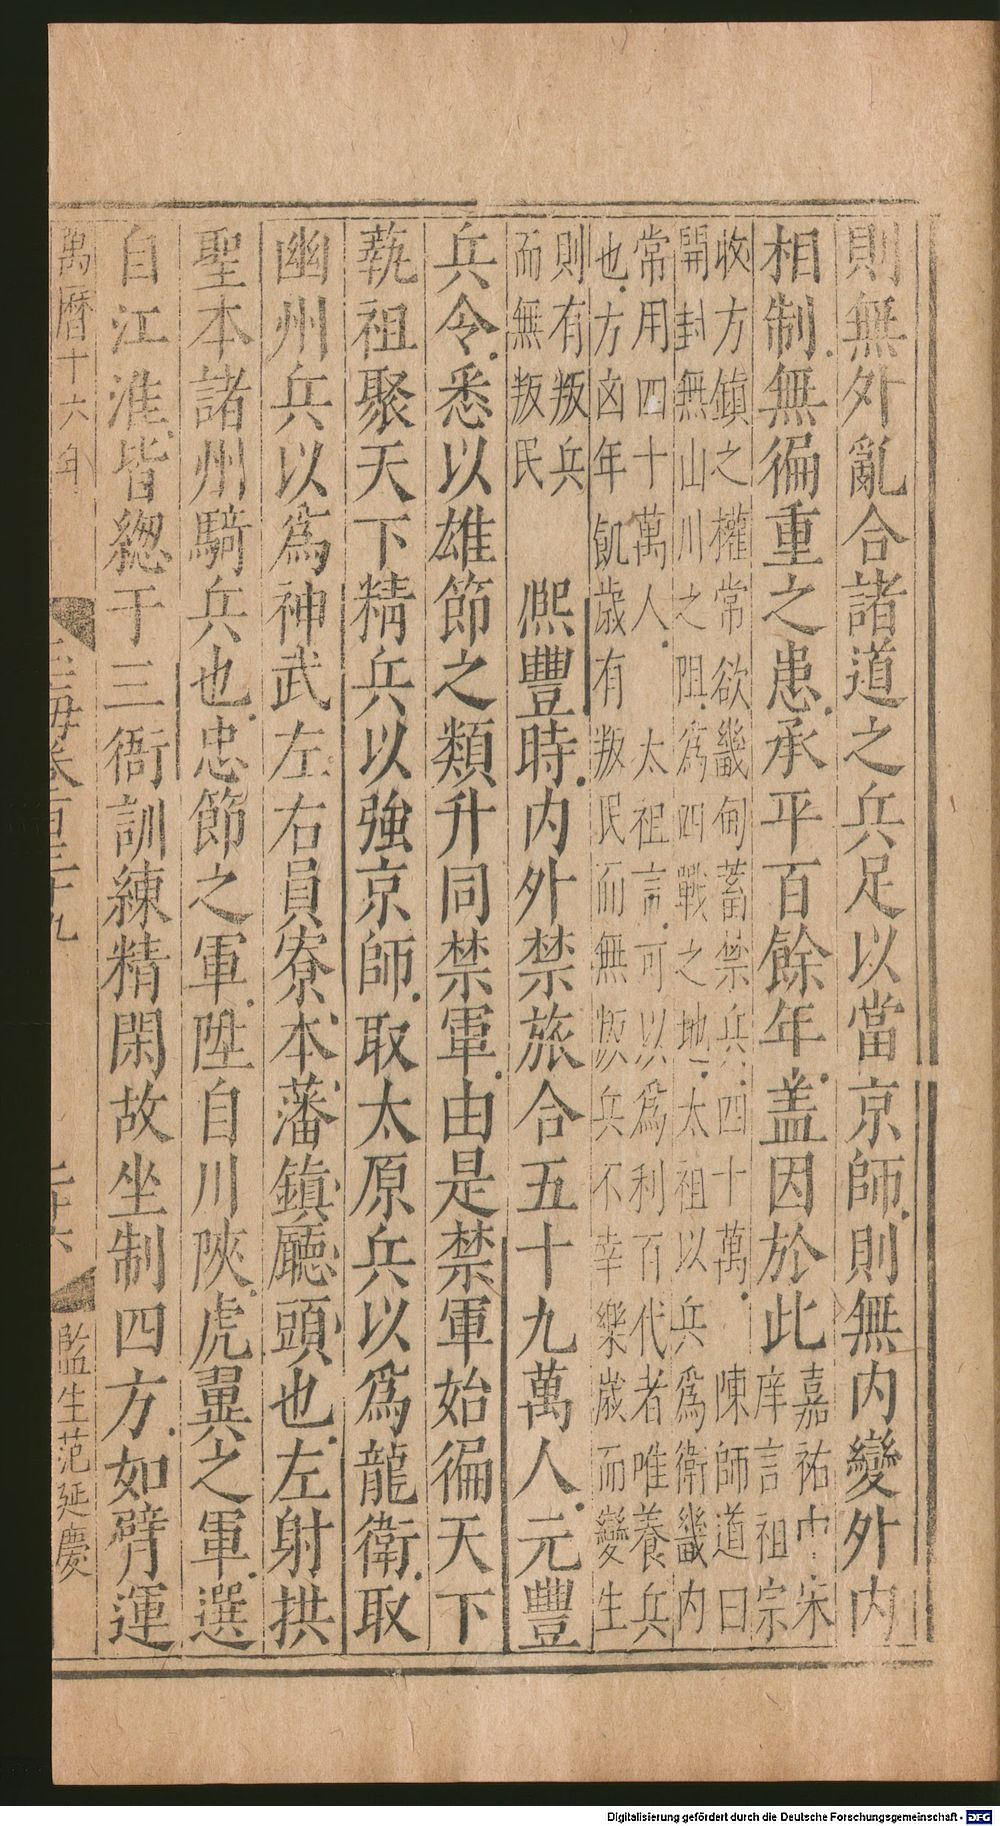 則無外亂合諸道之兵足以當京師則無内變外内
相制無徧重之患承平百餘年盖因於此嘉祐中宋
庠言祖宗
收方鎮之權常欲畿甸蓄禁兵四十萬陳師道曰
開封無山川之阻爲四戰之地太祖以兵爲衛畿内
常用四十萬人太祖言可以爲利百代者唯養兵
也方凶年飢歳有叛民而無叛兵不幸樂歳而變生
則有叛兵
而無叛民
熈豐時内外禁旅合五十九萬人元豐
兵令悉以雄節之類升同禁軍由是禁軍始徧天下
藝祖聚天下精兵以強京師取太原兵以爲龍衛取
幽州兵以爲神武左右員寮本藩鎮廳頭也左射拱
聖本諸州騎兵也忠節之軍陞自川陜虎翼之軍選
自江淮皆緫于三衙訓練精閑故坐制四方如臂運
萬曆十六年
玉海卷一百三十九
二十六
監生范延慶
Digitalisierung gefördert durch die Deutsche Forschungsgemeinschaft - DFG